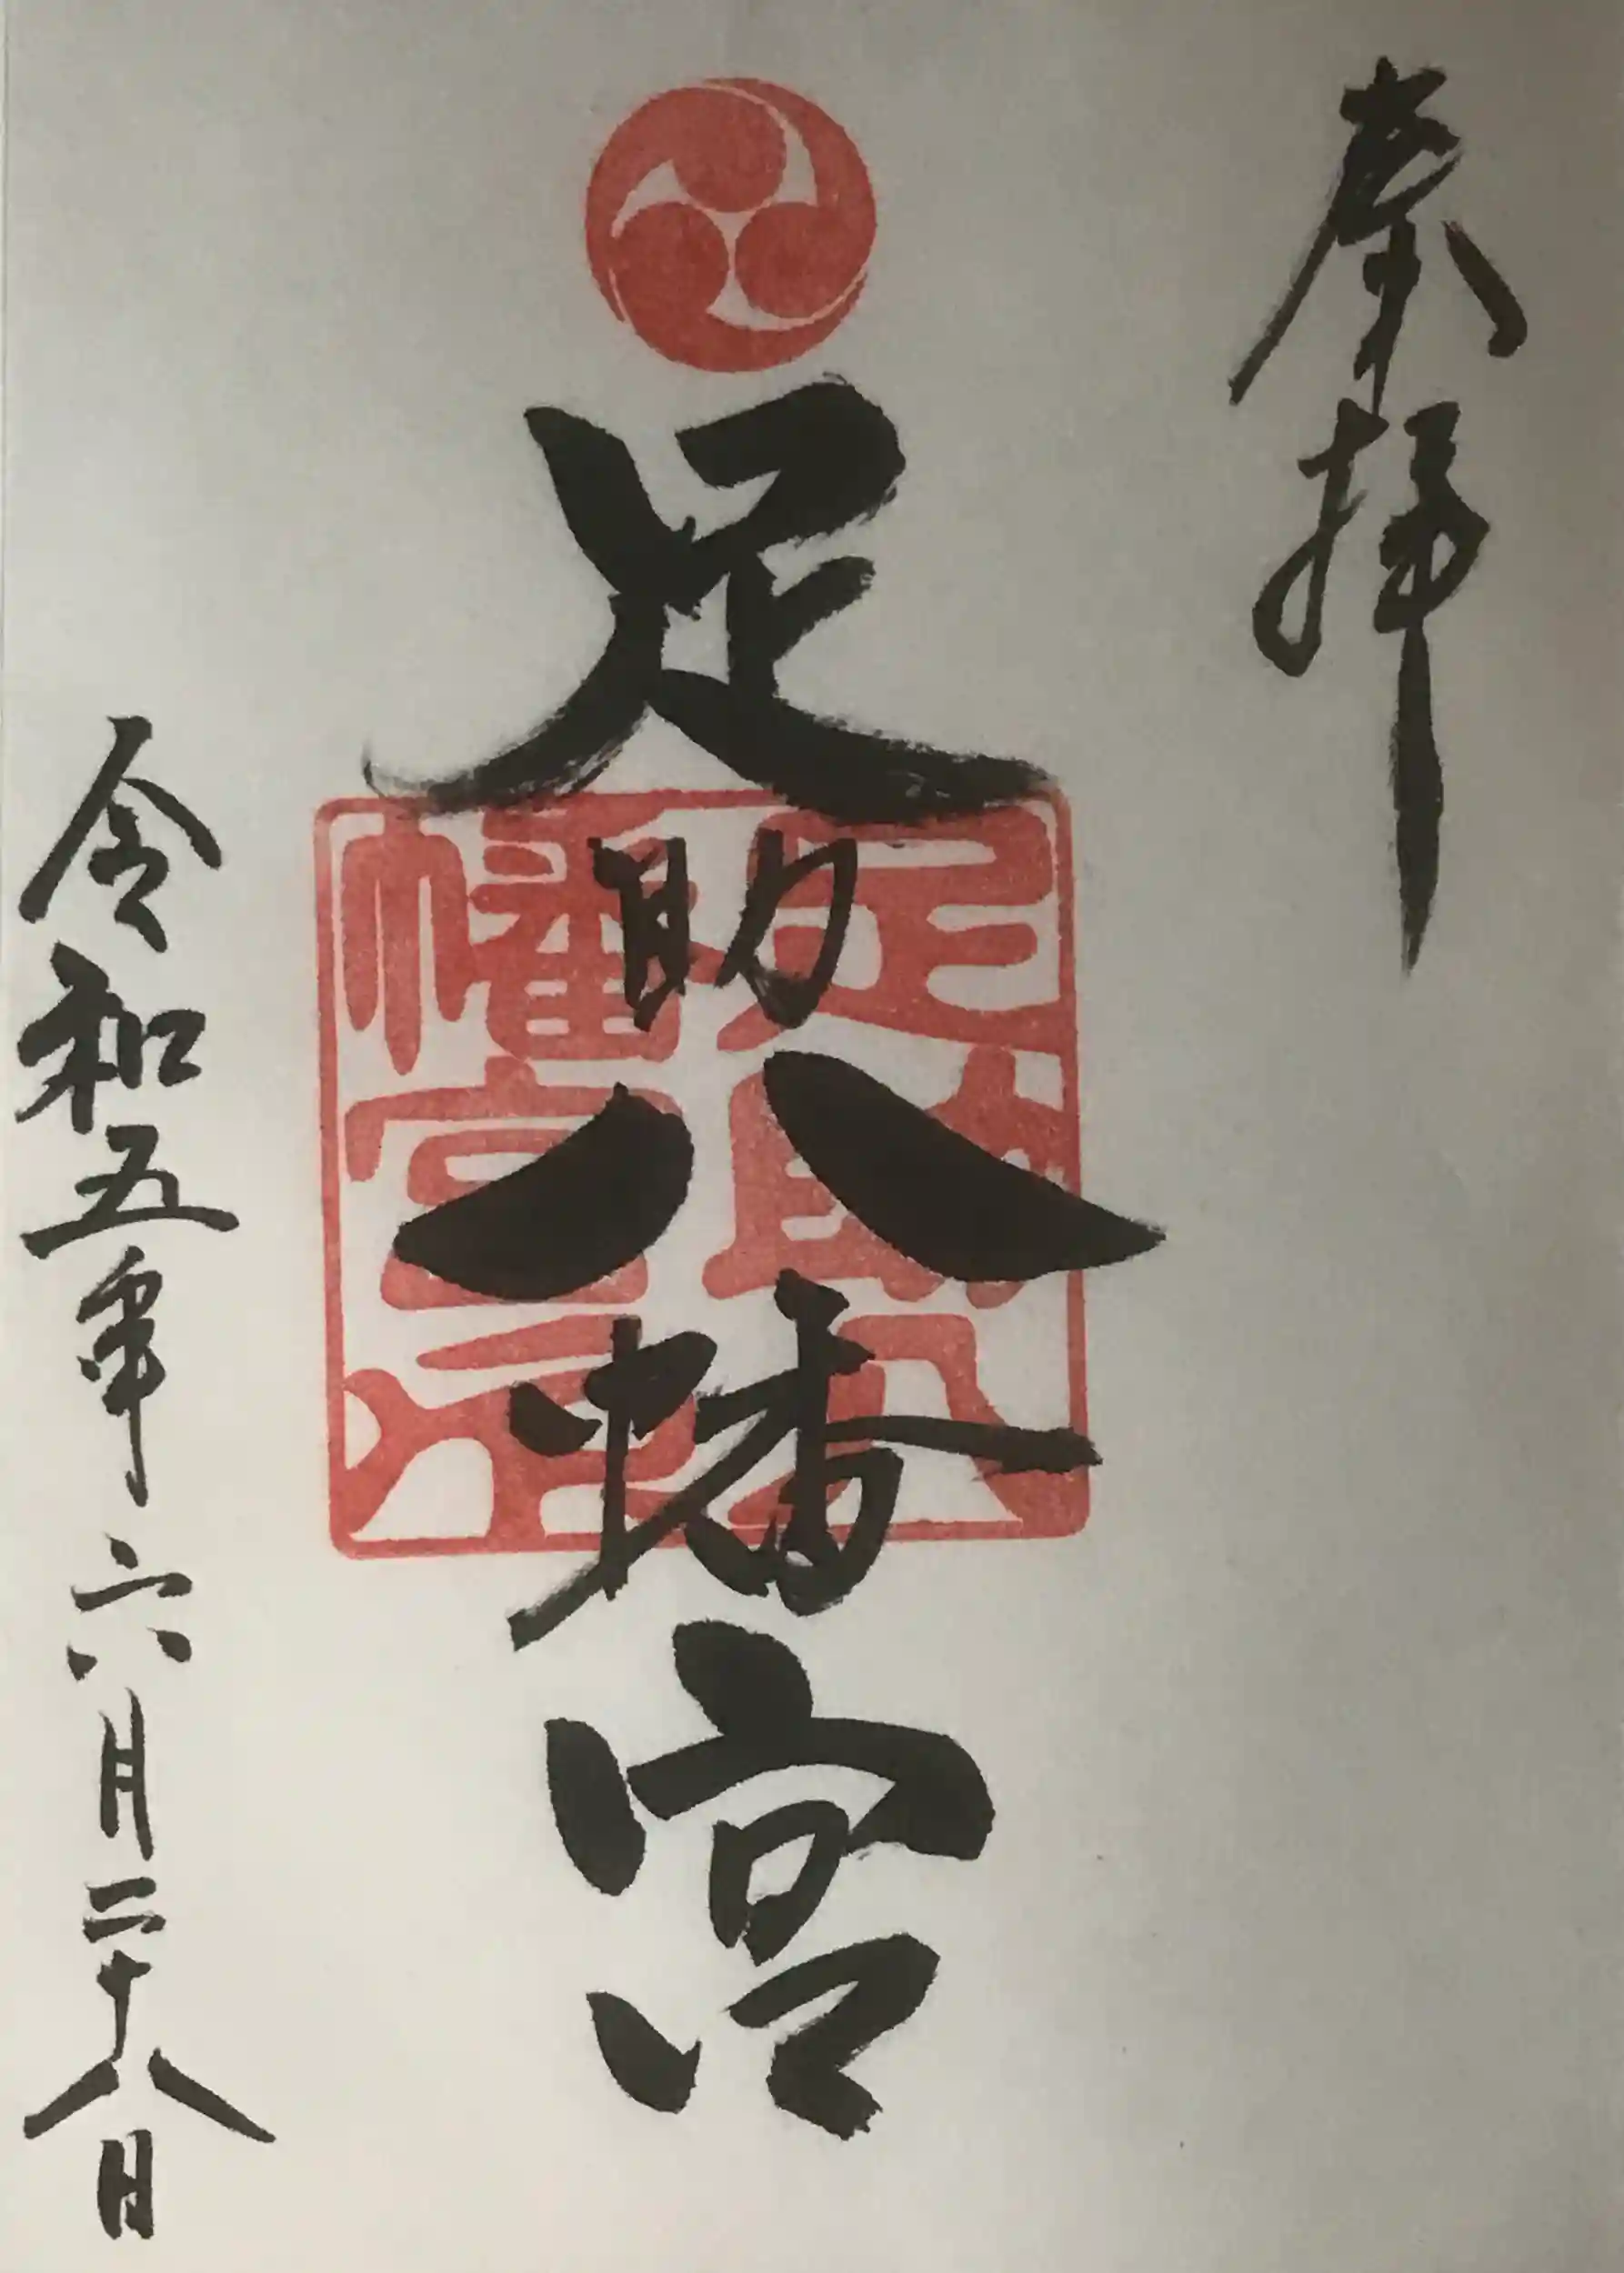 奉拝
足助八幡宮
足助八
幡宮之
令和五年六月二十八日